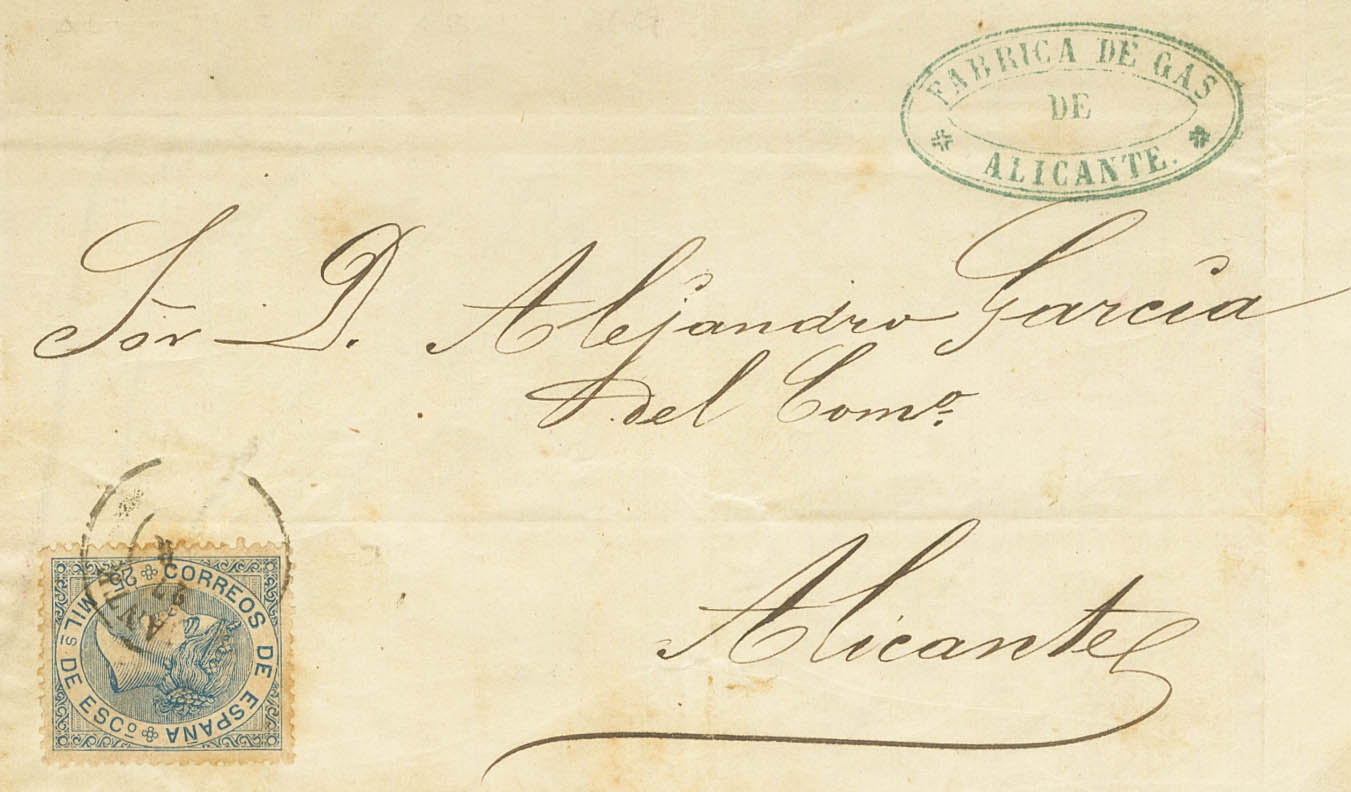 FABRICA DE GAS
DE
ALICANTE.
Sōr D. Alejandro García
del Comº.
Alicante
CORREOS DE ESPAÑA
25 MILS DE ESCº